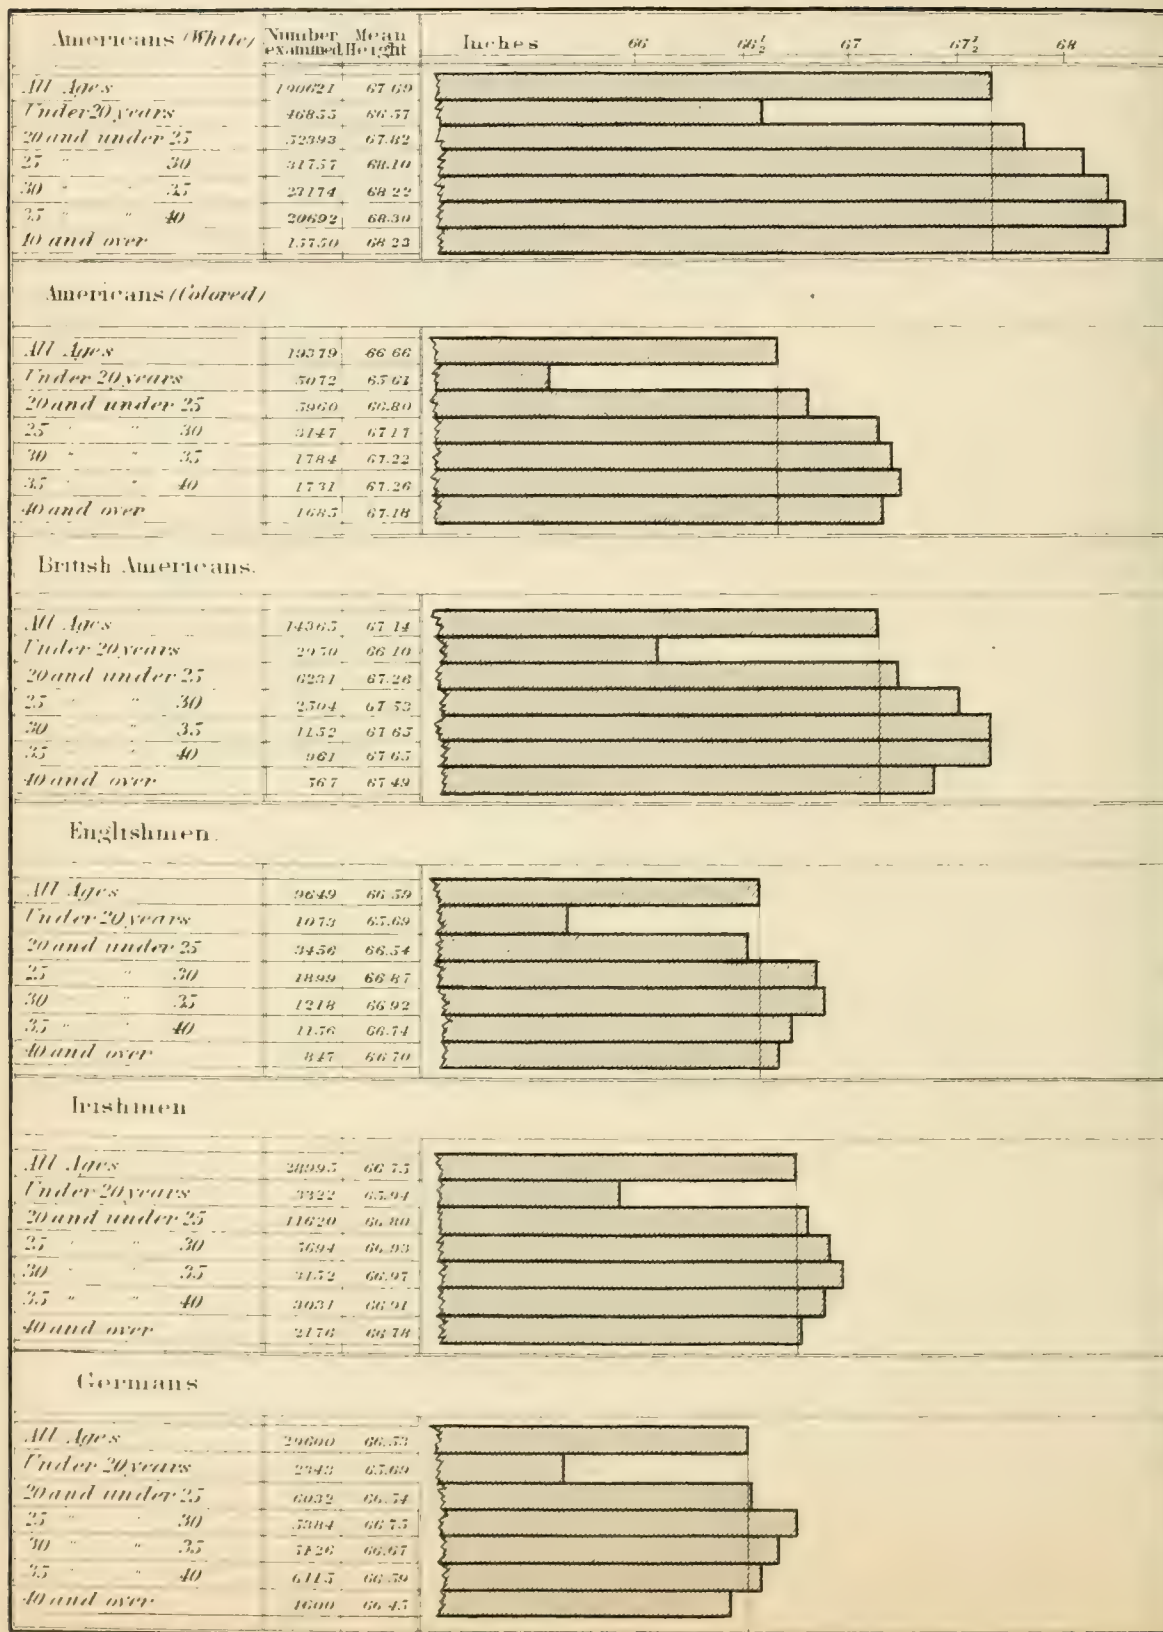 Americans (White) Number examined Mean Height Inches 66 66½ 67 67½ 68
All Ages 190621 67.69
Under 20 years 46855 66.57
20 and under 25 52393 67.82
25 " " 30 31757 68.10
30 " " 35 23174 68.22
35 " " 40 20692 68.30
40 and over 15750 68.23
Americans (Colored)
All Ages 19379 66.66
Under 20 years 5072 65.61
20 and under 25 5960 66.80
25 " " 30 3147 67.17
30 " " 35 1784 67.22
35 " " 40 1731 67.26
40 and over 1685 67.18
British Americans.
All Ages 14365 67.14
Under 20 years 2950 66.10
20 and under 25 6231 67.26
25 " " 30 2504 67.53
30 " " 35 1152 67.65
35 " " 40 961 67.65
40 and over 567 67.49
Englishmen.
All Ages 9649 66.59
Under 20 years 1073 65.69
20 and under 25 3456 66.54
25 " " 30 1899 66.87
30 " 35 1218 66.92
35 " " 40 1156 66.74
40 and over 847 66.70
Irishmen
All Ages 28995 66.75
Under 20 years 3322 65.94
20 and under 25 11620 66.80
25 " " 30 5694 66.93
30 " " 35 3152 66.97
35 " " 40 3031 66.91
40 and over 2176 66.78
Germans
All Ages 29600 66.53
Under 20 years 2343 65.69
20 and under 25 6032 66.54
25 " " 30 5384 66.75
30 " " 35 5126 66.67
35 " " 40 6115 66.59
40 and over 4600 66.45